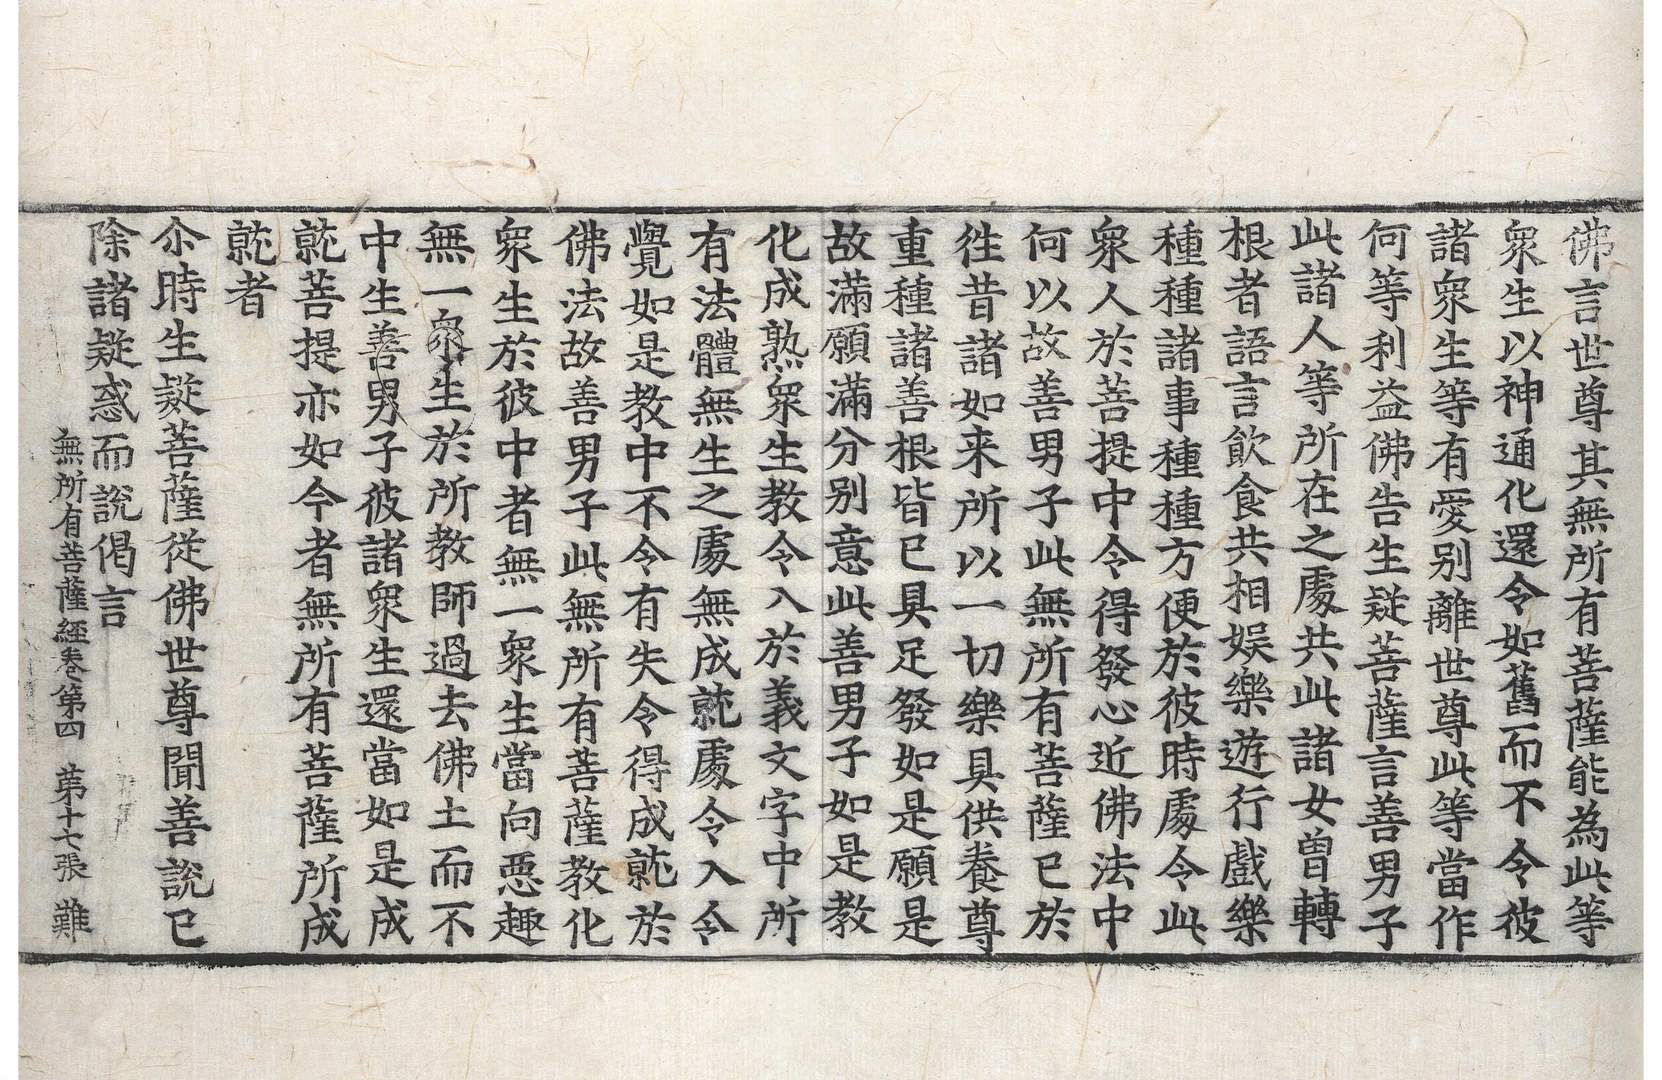 佛言世尊其無所有菩薩能為此等
衆生以神通化還令如舊而不令彼
諸衆生等有愛别離世尊此等當作
何等利益佛告生疑菩薩言善男子
此諸人等所在之處共此諸女曾轉
根者語言飲食共相娛樂遊行戲樂
種種諸事種種方便於彼時處令此
衆人於菩提中令得發心近佛法中
何以故善男子此無所有菩薩已於
徃昔諸如来所以一切樂具供養尊
重種諸善根皆已具足發如是願是
故滿願滿分别意此善男子如是教
化成熟衆生教令入於義文字中所
有法體無生之處無成就處令入令
覺如是教中不令有失令得成就於
佛法故善男子此無所有菩薩教化
衆生於彼中者無一衆生當向惡趣
無一衆生於所教師過去佛土而不
中生善男子彼諸衆生還當如是成
就菩提亦如今者無所有菩薩所成
就者
尒時生疑菩薩從佛世尊聞善說已
除諸疑惑而說偈言
無所有菩薩經卷第四　苐十七張　難